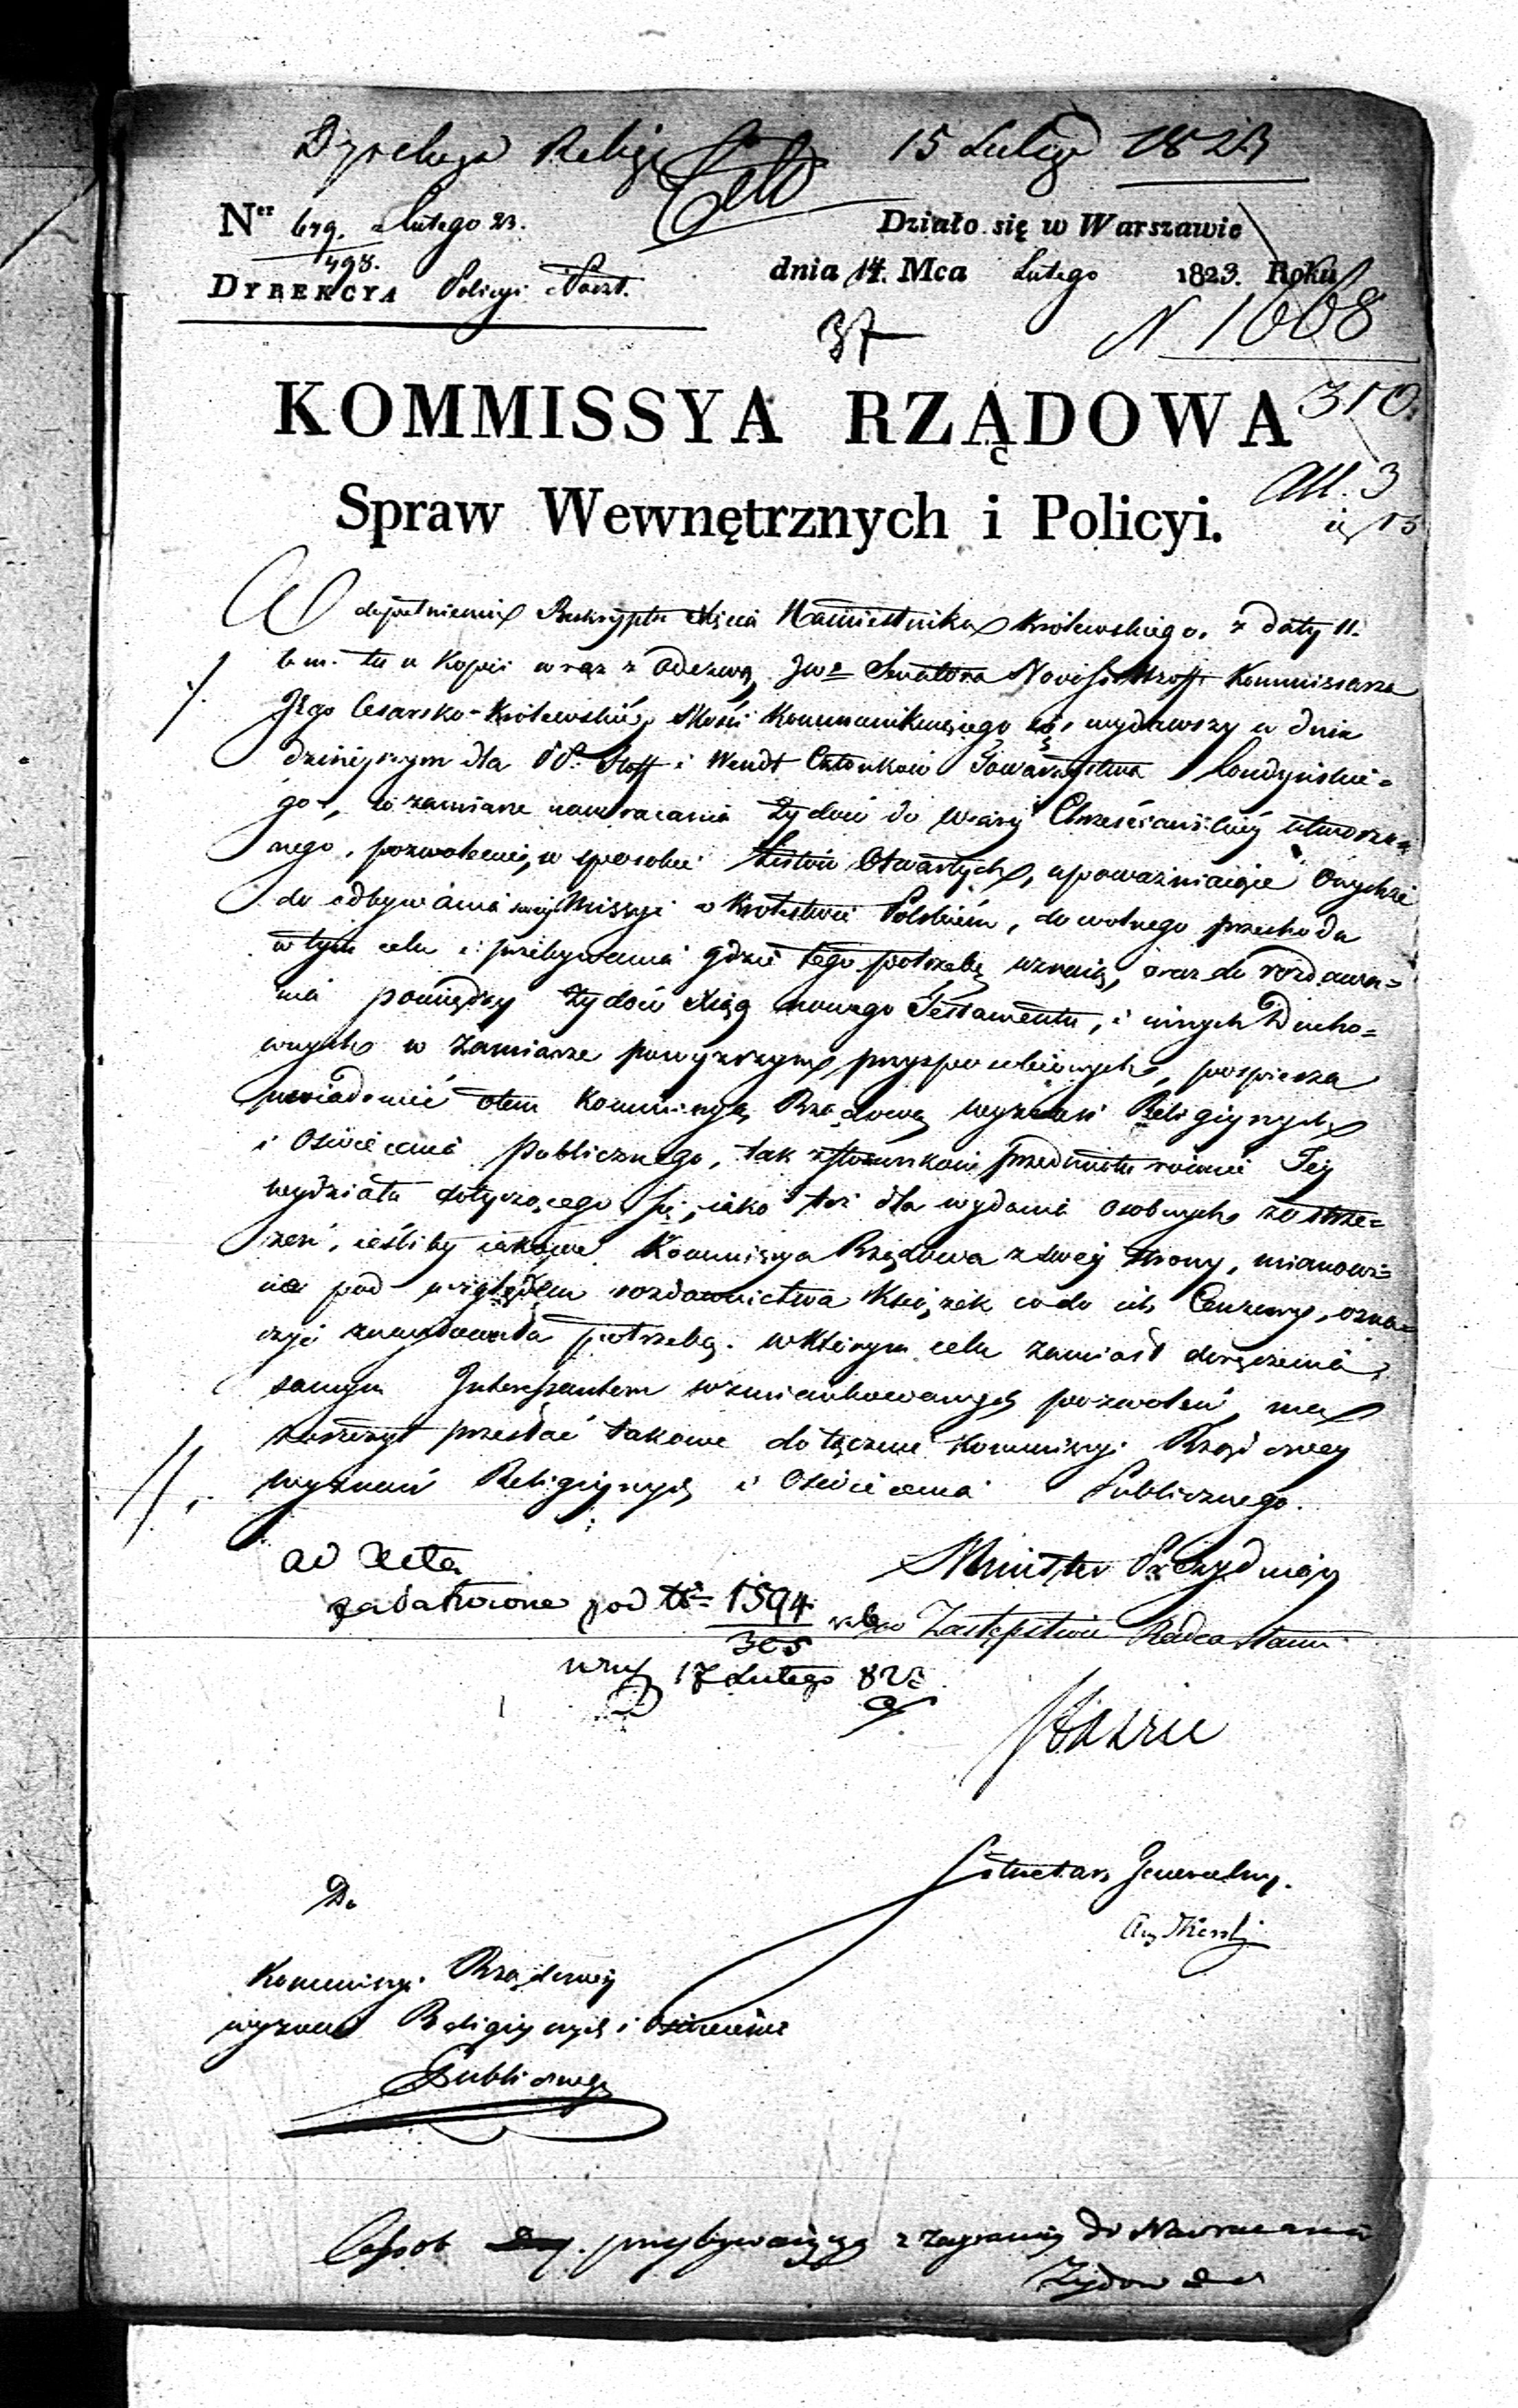 15 Lutego 1823
Ner 679. Lutego 23.
498.
Działo się w Warszawie
DYREKCYA Policyi
dnia 14. Mca Lutego 1823. Roku
37
N 1668
310.
KOMMISSYA RZĄDOWA
Spraw Wewnętrznych i Policyi.
W dopełnieniu Reskryptu Xięcia Namiestnika Królewskiego. z daty 11.
b. m. tu w Kopii wraz z Odezwą JWo Senatora Kommissarza
Jego Cesarsko-Królewskiéy Mości kommunikuiącego się, wydawszy w dniu
dzisieyszym dla PP. Hoff i Wendt Członków Towarzystwa Londyńskie=
go, w zamiarze nawracania Żydów do Wiary Chrześciańskiéy utworzo=
nego, pozwolenie, w sposobie Listów Otwartych, upoważniaiące Onychże
do odbywania swéy Missyi w Królestwie Polskiém, do wolnego przechodu
w tym celu i przebywania gdzie tego potrzebę uznaią, oraz do rozdawa=
nia pomiędzy Żydów Xiąg nowego Testamentu, i innych Ducho=
wnych w zamiarze powyższym przysposobionych, pospiesza
uwiadomić o tem Kommissyą Rządową wyznań Religiynych
i Oświecenia publicznego, tak z stosunków przedmiotu równie Jéy
wydziału dotyczącego się, iako też dla wydania osobnych zastrze=
żeń, ieśliby iakowe Kommissya Rządowa z swéy strony, mianowi=
cie pod względem rozdawnictwa Książek co do ich Cenzury, ozna=
czyć znaydowała potrzebę. w którym celu zamiast doręczenia
samym Interessantom wzmiankowanych pozwoleń, ma
zaszczyt przesłać takowe dołączone Kommissyi Rządowéy
wyznań Religiynych i Oświecenia Publicznego.
ad acta
Minister Prezyduiący
załatwione pod No 1594.
305
w Zastępstwie Radca Stanu
17 Lutego 823
Staszic
Sekretarz Generalny.
Do
Kommissyi Rządowéy
wyznań Religiynych i Oświecenia
Publicznego
Osob przybywaiących z zagranicy do Nawracania
Żydów